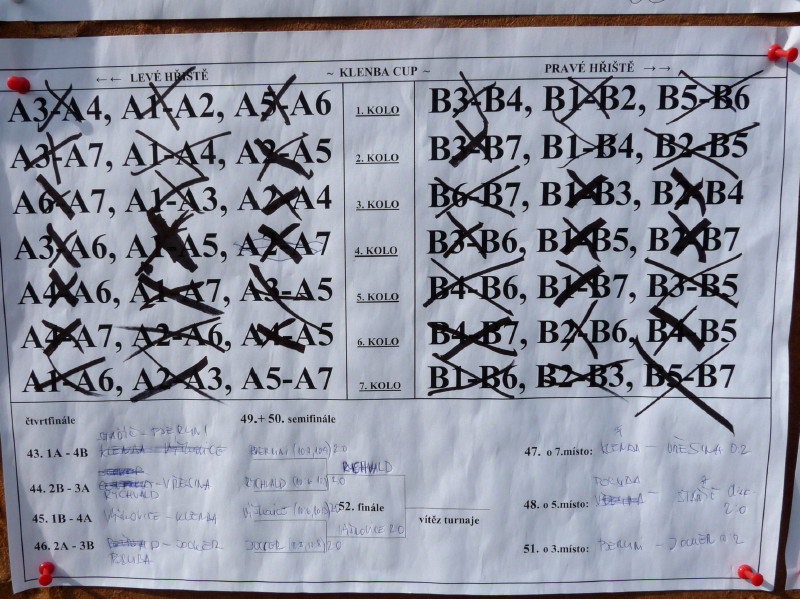 ←← LEVÉ HŘIŠTĚ ~ KLENBA CUP ~ PRAVÉ HŘIŠTĚ →→
A3-A4, A1-A2, A5-A6 1. KOLO B3-B4, B1-B2, B5-B6
A3-A7, A1-A4, A2-A5 2. KOLO B3-B7, B1-B4, B2-B5
A6-A7, A1-A3, A2-A4 3. KOLO B6-B7, B1-B3, B2-B4
A3-A6, A1-A5, A2-A7 4. KOLO B3-B6, B1-B5, B2-B7
A4-A6, A1-A7, A3-A5 5. KOLO B4-B6, B1-B7, B3-B5
A4-A7, A2-A6, A4-A5 6. KOLO B4-B7, B2-B6, B4-B5
A1-A6, A2-A3, A5-A7 7. KOLO B1-B6, B2-B3, B5-B7
čtvrtfinále 49.+ 50. semifinále
43. 1A - 4B 47. o 7.místo: KLENBA - VŘESINA 0:2
RYCHVALD
44. 2B - 3A - VŘESINA RYCHVALD
RYCHVALD
52. finále 48. o 5.místo: 2:0
vítěz turnaje
45. 1B - 4A - KLENBA 2:0
46. 2A - 3B - JOCKER JOCKER 2:0 51. o 3.místo: BERLIN - JOCKER 0:2